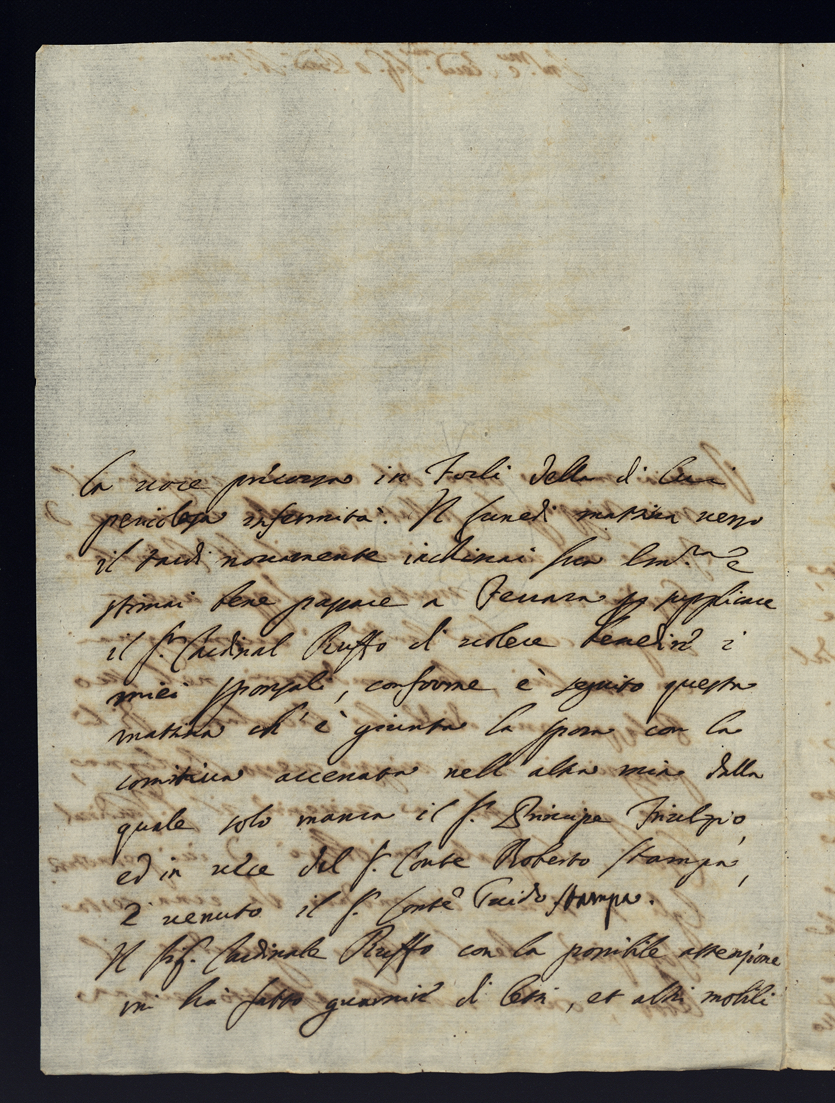 la voce precorsa in Forlì della di lui
pericolosa infermità. Il lunedì mattina verso
il tardi novamente inchinai Sua Em.za e
stimai bene passare a Ferrara p supplicare
il S.r Cardinal Ruffo di volere benedir i
miei sponsali, conforme è seguito questa
mattina ch'è giunta la sposa con la
comitiva accenata nell altra mia dalla
quale solo manca il S. Principe Triulzio,
ed in vece del S. Conte Roberto Stampa,
è venuto il S. Conte Guido Stampa.
Il Sig. Cardinale Ruffo con la possibile attenzione
mi hà fatto guarnir di letti, et altri mobili